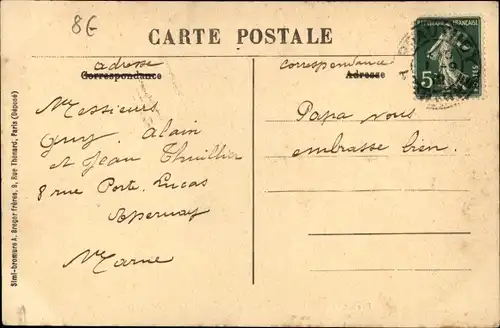 8€
CARTE POSTALE
adresse
Correspondance
correspondance
Adresse
RÉPUBLIQUE FRANÇAISE
5
POSTES
Messieurs
Guy. Alain
et Jean Thuillier
8 rue Porte. Lucas
Epernay
Marne
Papa vous
embrasse bien.
Simi-bromure A. Breger frères, 9, Rue Thénard, Paris (Déposé)